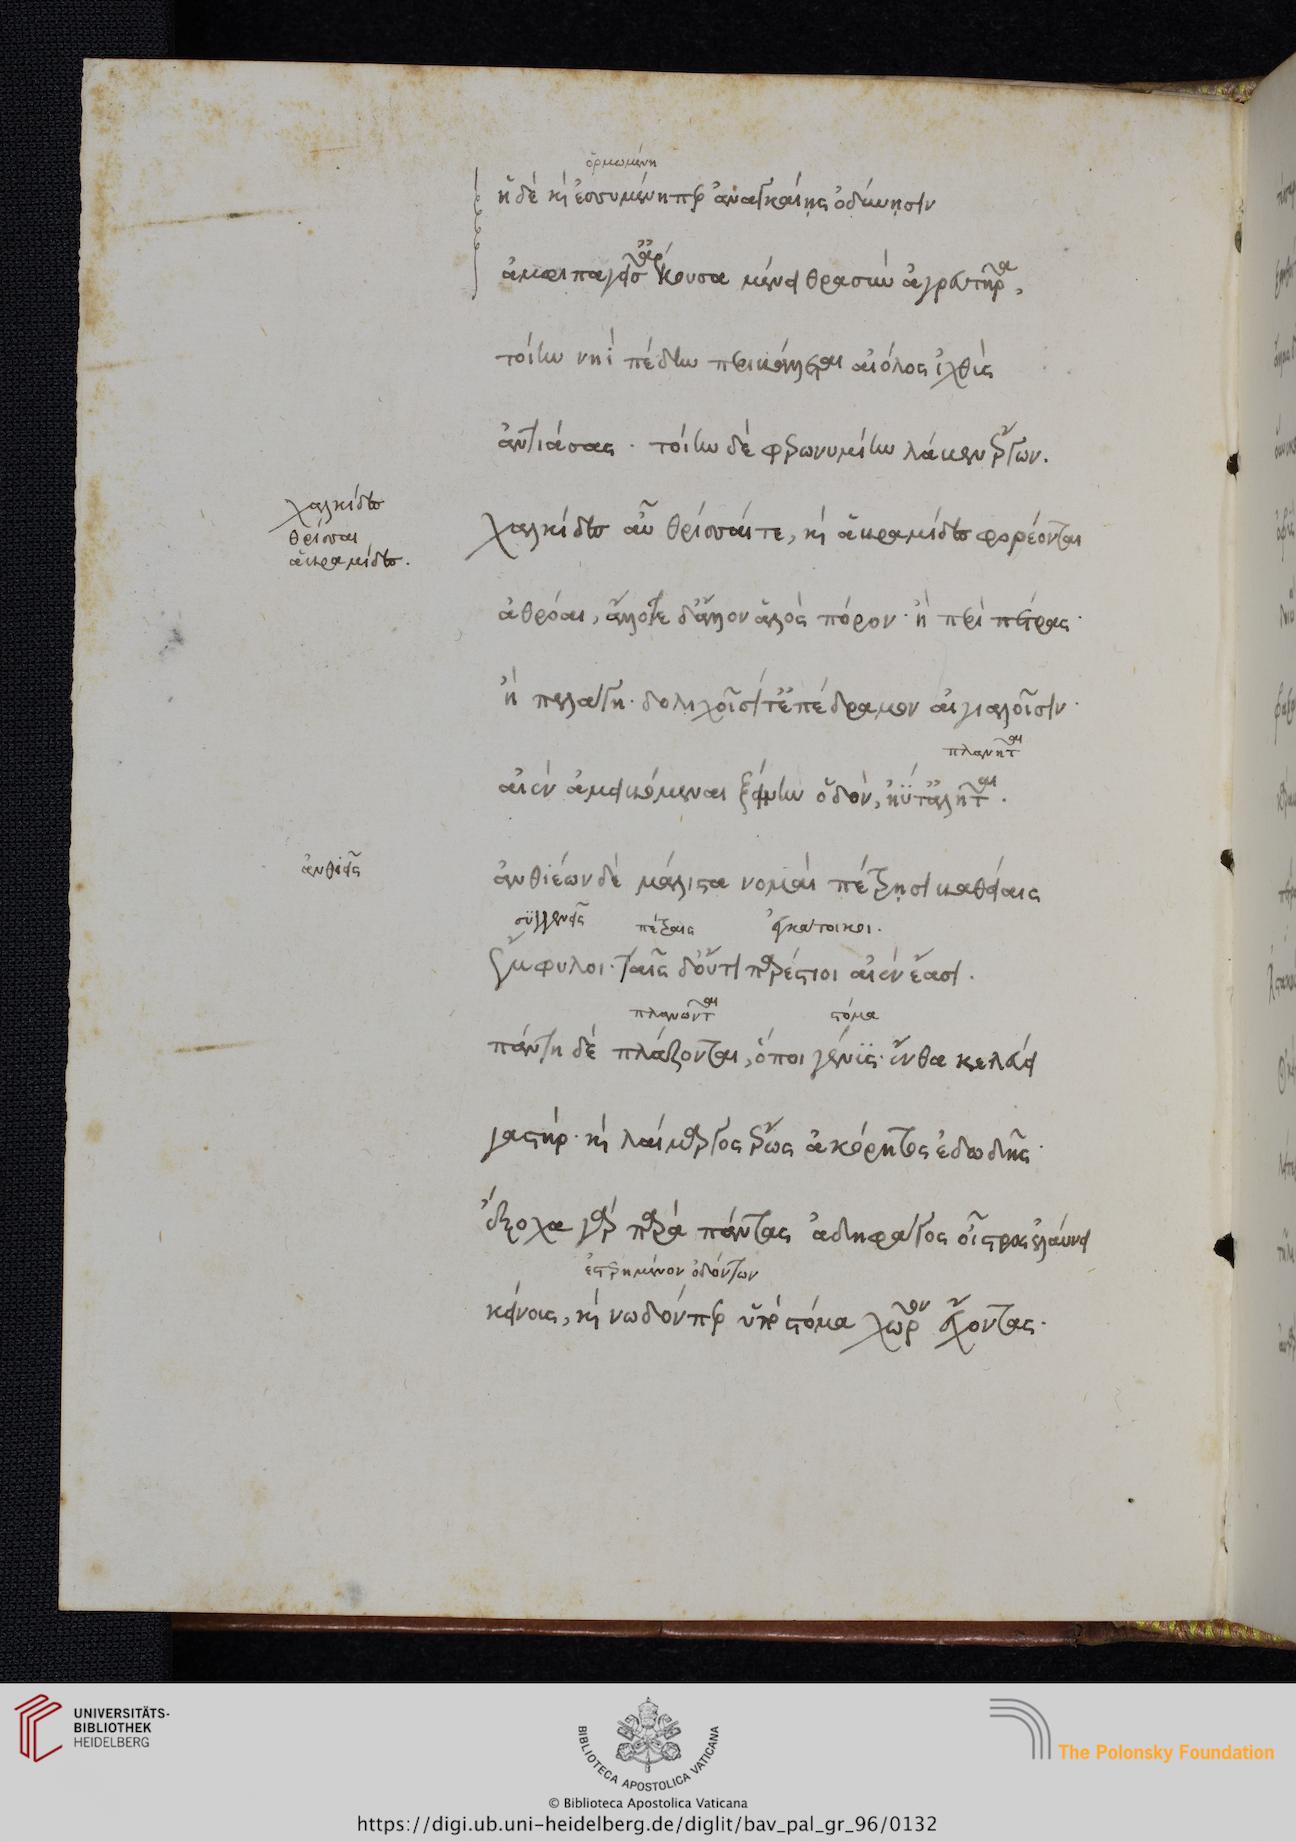 ὁρμωμένη
ἡ δὲ καὶ ἐσσυμένη περ ἀναγκαίης ὀδύνῃσιν
ἀμφιπαγεῖσ' ἄρκουσα μένει θρασὺν ἀγρευτῆρα,
τοίην νηῒ πέδην περικάλλεται αἰόλος ἰχθὺς
ἀντιάσας · τοίην δὲ φερωνυμίην λάχεν ἔργων.
χαλκίδες
θρίσσαι
ἀκραμίδες.
χαλκίδες αὖ θρίσσαι τε, καὶ ἀκραμίδες φορέονται
ἀθρόαι, ἄλλοτε δ' ἄλλον ἁλὸς πόρον · ἢ περὶ πέτρας ·
ἢ πελάγη · δολιχοῖσί τ' ἐπέδραμον αἰγιαλοῖσιν ·
πλανῆται
αἰὲν ἀμειβόμεναι ξείνην ὁδὸν, ἠΰτ' ἀλῆται .
ἀνθιεῖς
ἀνθιέων δὲ μάλιστα νομαὶ πέτρῃσι βαθείαις
συγγενεῖς πέτραις ἐγκάτοικοι.
ἔμφυλοι · ταῖς δ' οὔτι παρέστιοι αἰὲν ἔασι .
πλανῶνται στόμα
πάντη δὲ πλάζονται, ὅποι γένυς · ἔνθα κελεύει
γαστὴρ · καὶ λαίμαργος ἔρως ἀκόρητος ἐδωδῆς ·
ἔξοχα γὰρ παρὰ πάντας ἀδηφάγος οἶστρος ἐλαύνει
ἐστερημένον ὀδόντων
κείνους, καὶ νωδόν περ ὑπὸ στόμα χῶρον ἔχοντας ·
UNIVERSITÄTS-
BIBLIOTHEK
HEIDELBERG
BIBLIOTECA APOSTOLICA VATICANA
The Polonsky Foundation
© Biblioteca Apostolica Vaticana
https://digi.ub.uni-heidelberg.de/diglit/bav_pal_gr_96/0132